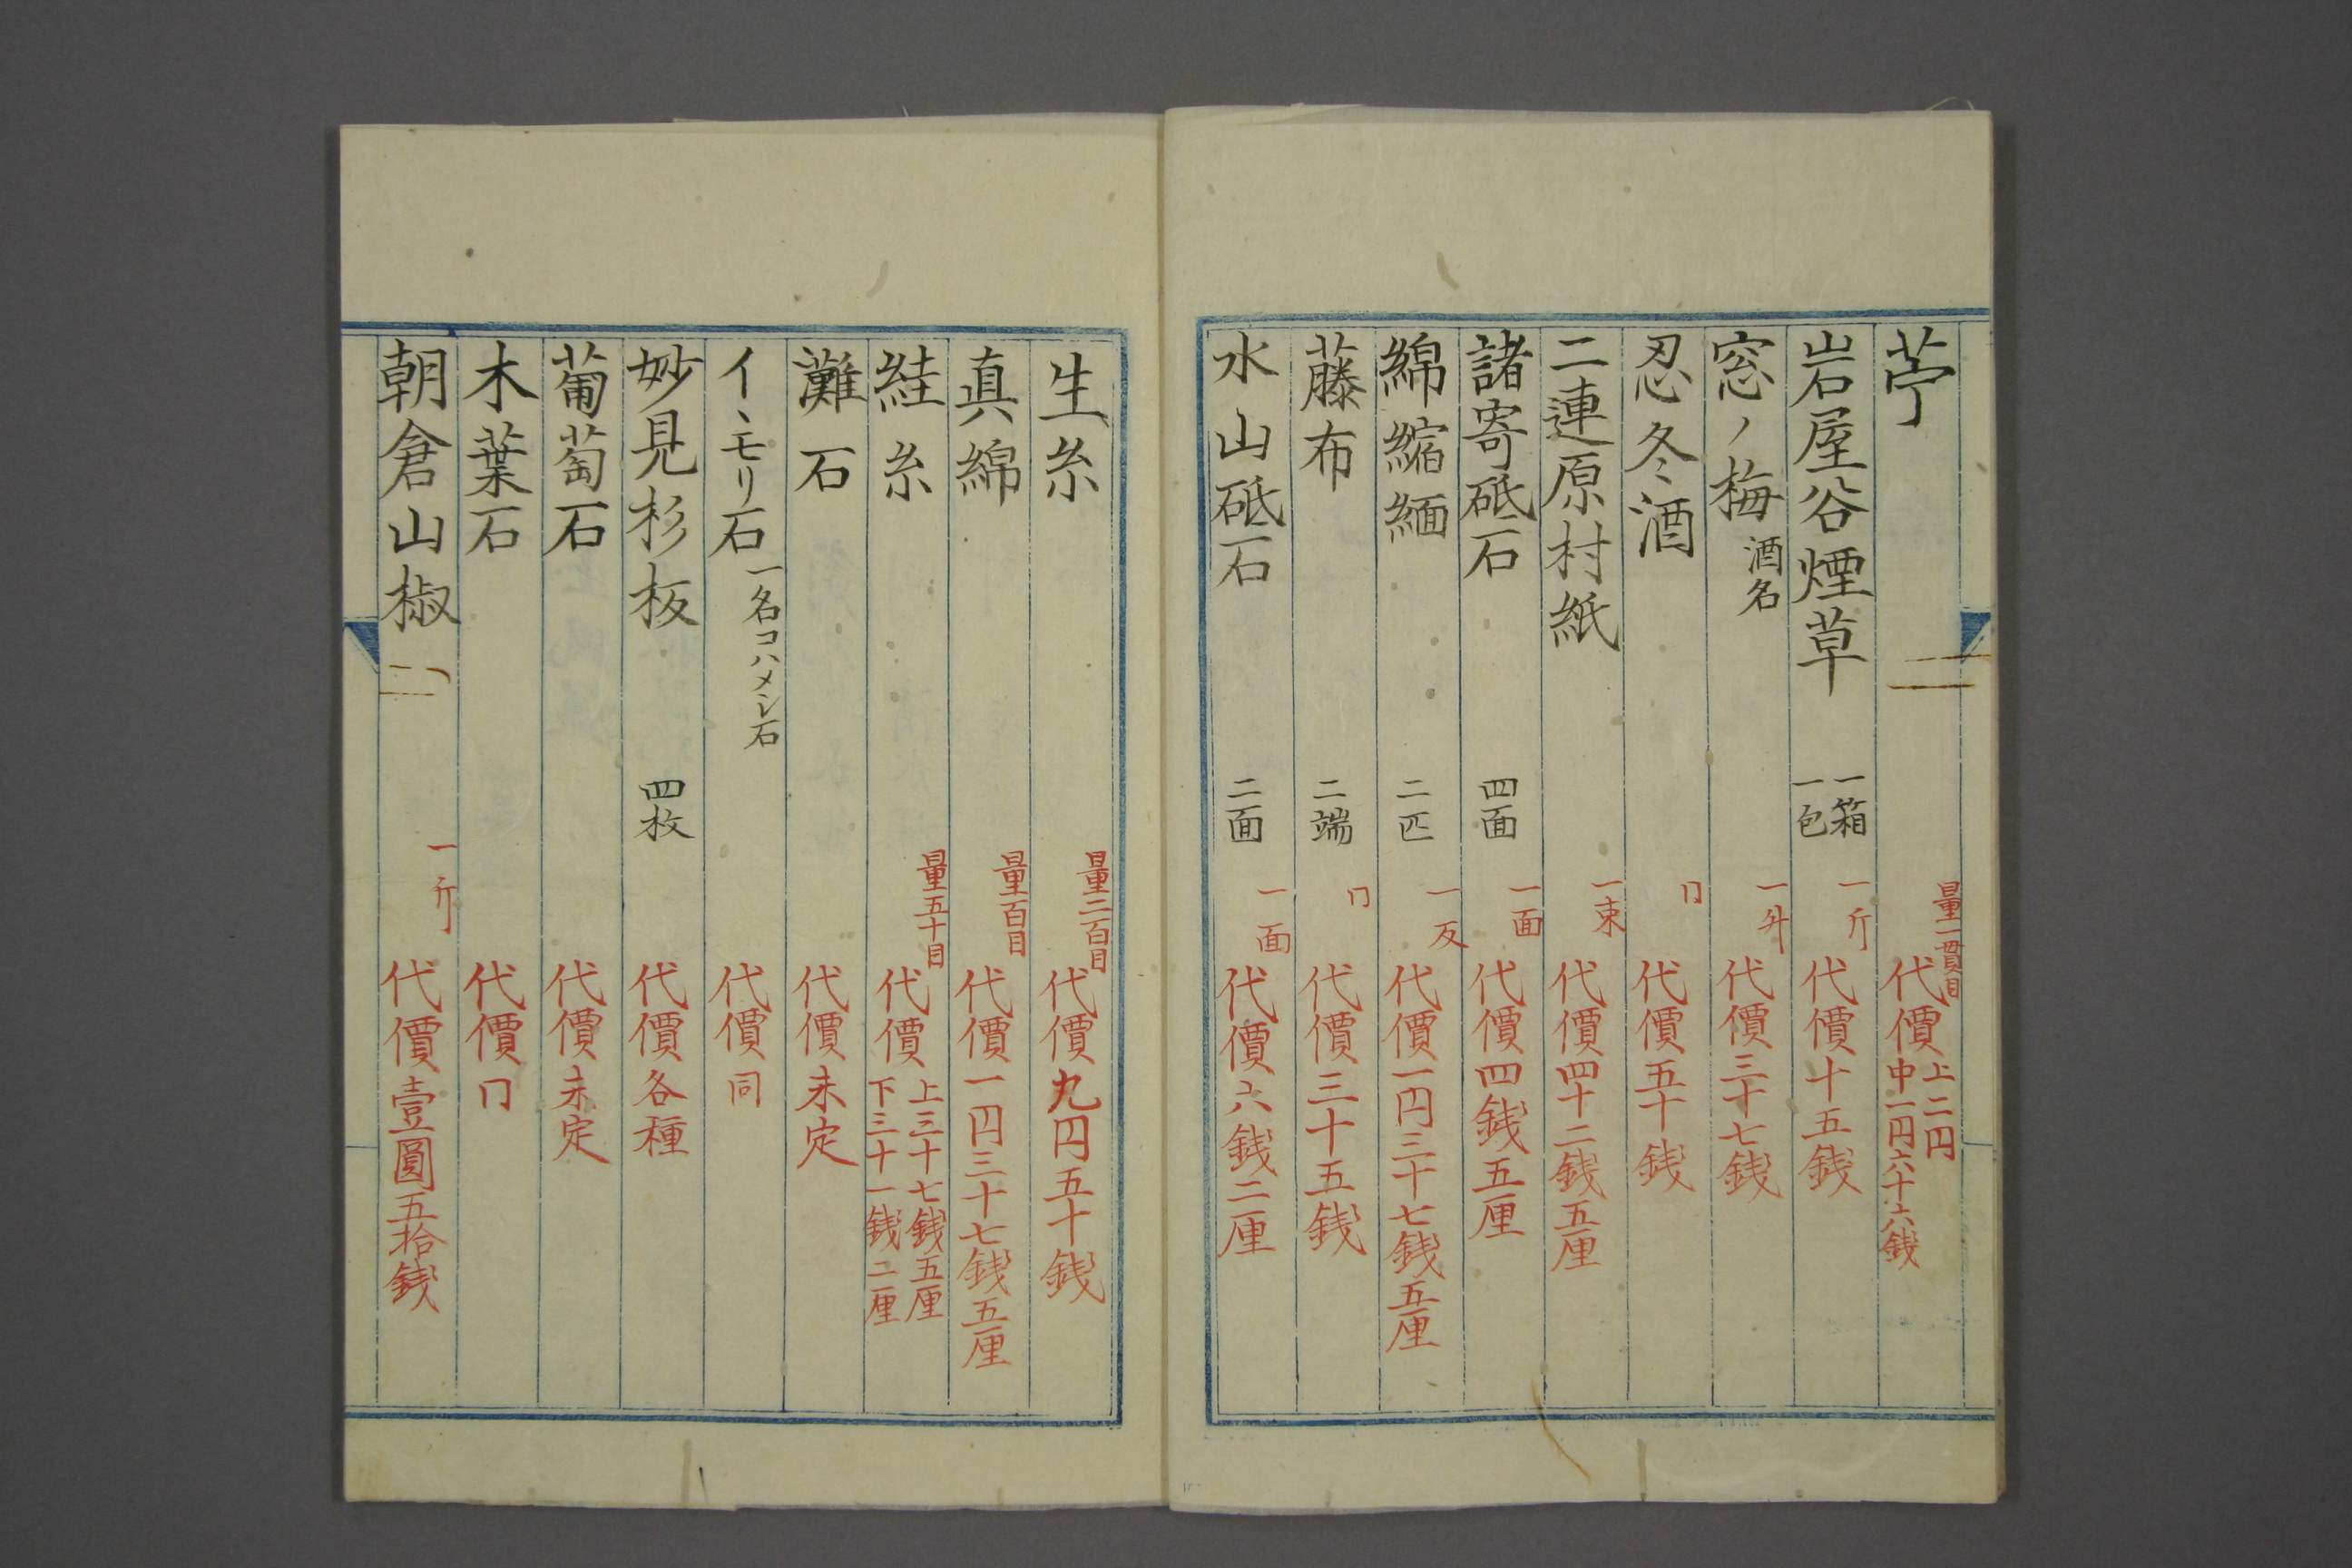 苧 量一貫目 代價 上二円 中一円六十六銭
岩屋谷煙草 一箱 一包 一斤 代價十五銭
窓ノ梅 酒名 一升 代價三十七銭
忍冬酒 〃 代價五十銭
二連原村紙 一束 代價四十二銭五厘
諸寄砥石 四面 一面 代價四銭五厘
綿縮緬 二匹 一反 代價一円三十七銭五厘
藤布 二端 〃 代價三十五銭
水山砥石 二面 一面 代價六銭二厘
生糸 量二百目 代價九円五十銭
真綿 量百目 代價一円三十七銭五厘
絓糸 量五十目 代價 上三十七銭五厘 下三十一銭二厘
灘石 代價未定
イヽモリ石 一名コハメシ石 代價同
妙見杉板 四枚 代價各種
葡萄石 代價未定
木葉石 代價〃
朝倉山椒 一斤 代價壹圓五拾銭